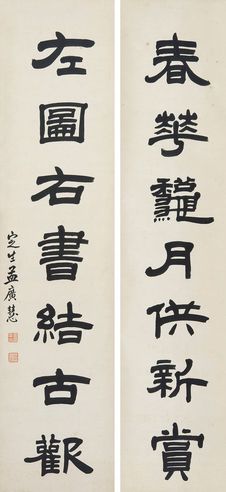 春華龝月供新賞
左圖右書結古歡
定生孟廣慧